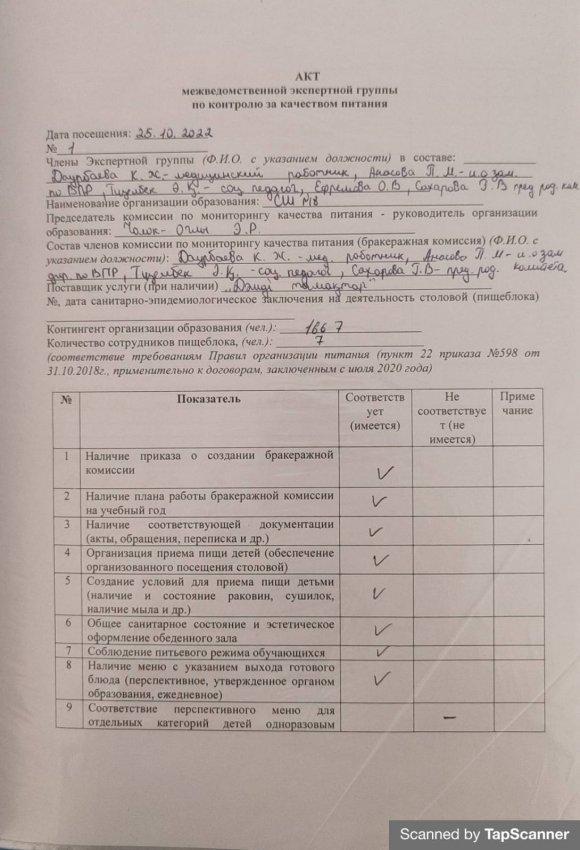 АКТ
межведомственной экспертной группы
по контролю за качеством питания
Дата посещения: 25.10.2022
№ 1
Члены Экспертной группы (Ф.И.О. с указанием должности) в составе:
Даурбаева К. Ж.- медицинский работник, Анасова П. М.- и.о зам.
по ВПР, Э.К.- соц педагог, Ефремова О.В, Сахарова Г.В пред род. ком
Наименование организации образования: СШ №18
Председатель комиссии по мониторингу качества питания - руководитель организации
образования: Э.Р.
Состав членов комиссии по мониторингу качества питания (бракеражная комиссия) (Ф.И.О. с
указанием должности): Даурбаева К. Ж. - мед. работник, Анасова П. М- и.о зам
дир. по ВПР, Э.К. - соц. педагог, Сахарова Г.В- пред. род. комитета
Поставщик услуги (при наличии) „Дәмді тамақтар"
№, дата санитарно-эпидемиологическое заключения на деятельность столовой (пищеблока)
Контингент организации образования (чел.): 1667
Количество сотрудников пищеблока, (чел.): 7
(соответствие требованиям Правил организации питания (пункт 22 приказа №598 от
31.10.2018г., применительно к договорам, заключенным с июля 2020 года)
№ Показатель Соответств Не Приме
ует соответствуе чание
(имеется) т (не
имеется)
1 Наличие приказа о создании бракеражной
комиссии ✓
2 Наличие плана работы бракеражной комиссии ✓
на учебный год
3 Наличие соответствующей документации ✓
(акты, обращения, переписка и др.)
4 Организация приема пищи детей (обеспечение ✓
организованного посещения столовой)
5 Создание условий для приема пищи детьми ✓
(наличие и состояние раковин, сушилок,
наличие мыла и др.)
6 Общее санитарное состояние и эстетическое ✓
оформление обеденного зала
7 Соблюдение питьевого режима обучающихся ✓
8 Наличие меню с указанием выхода готового ✓
блюда (перспективное, утвержденное органом
образования, ежедневное)
9 Соответствие перспективного меню для –
отдельных категорий детей одноразовым
Scanned by TapScanner